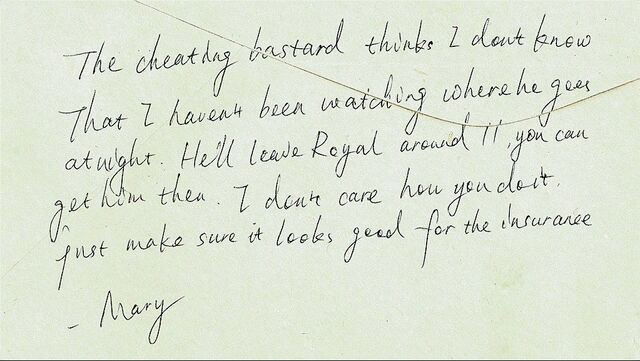 The cheating bastard thinks I dont know
That I havent been watching where he goes
at night. He'll leave Royal around 11, you can
get him then. I dont care how you do it.
just make sure it looks good for the insurance
- Mary